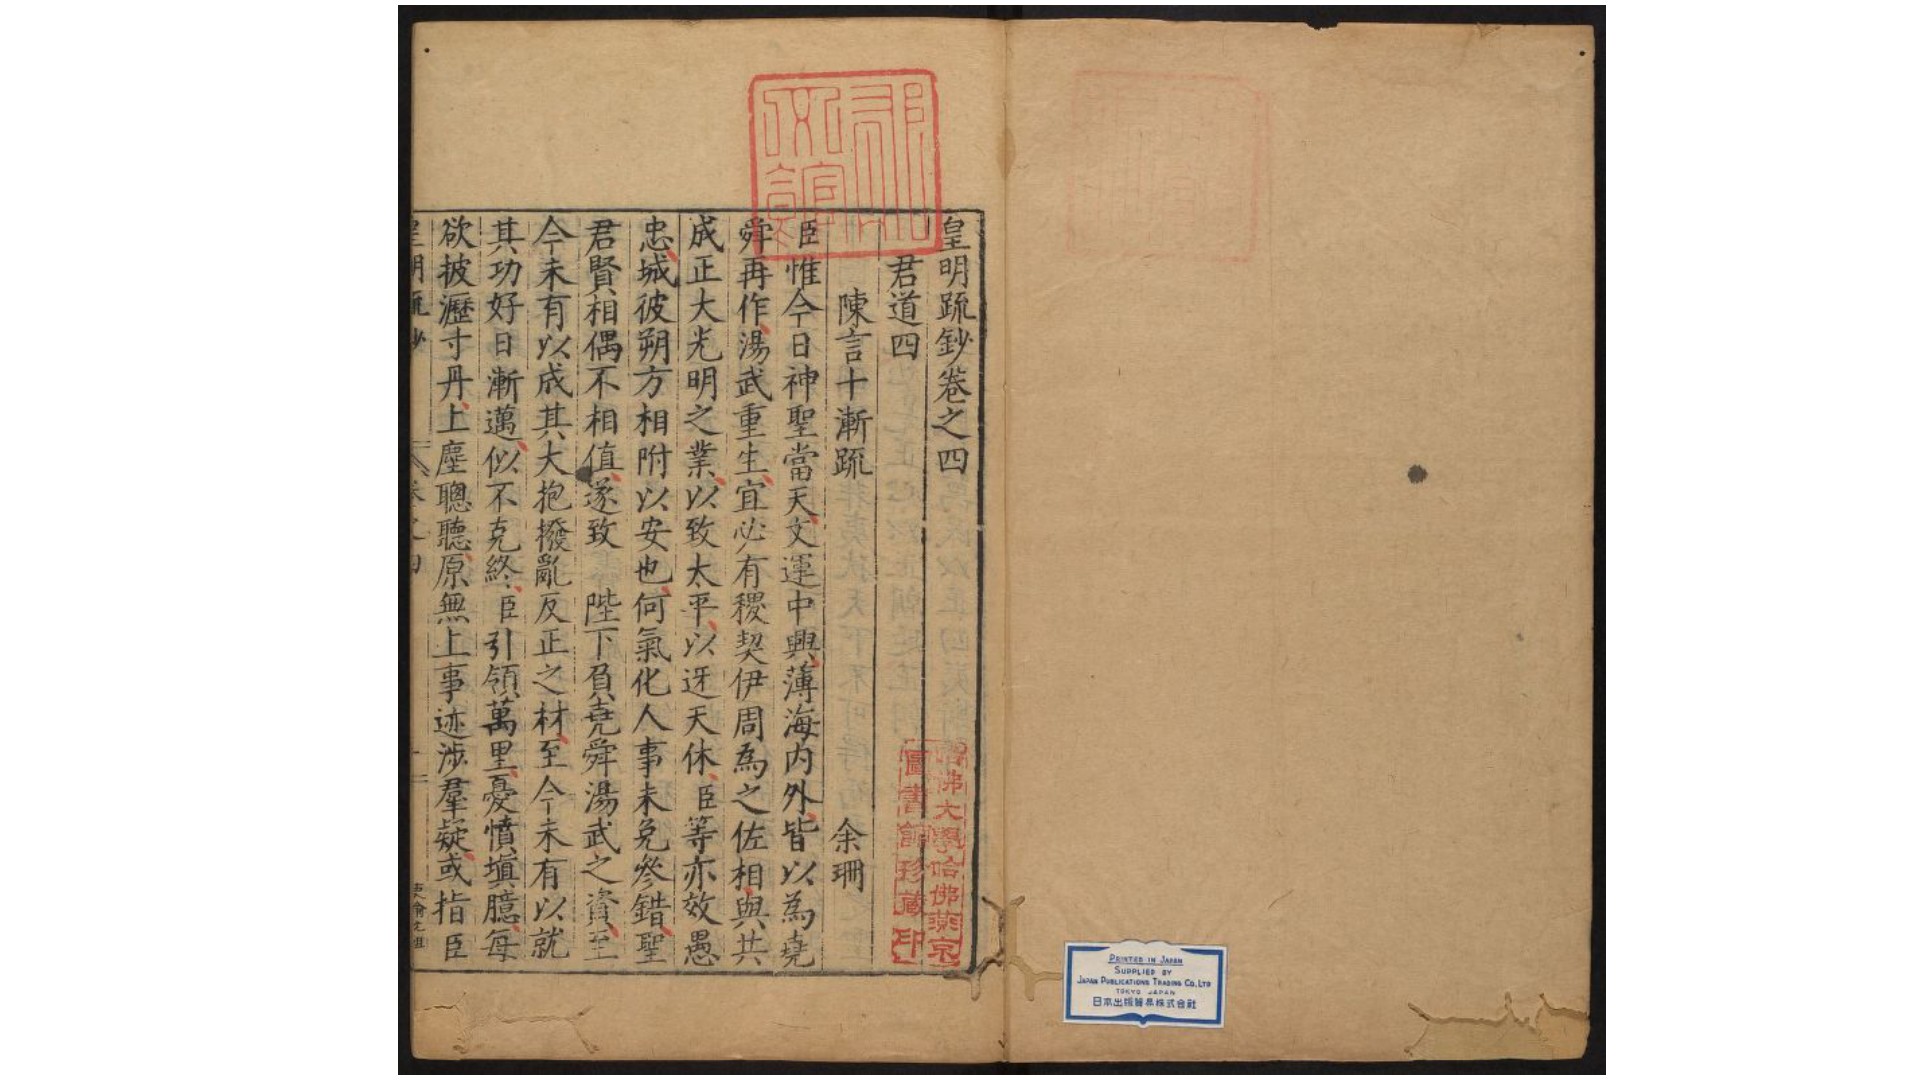 皇明疏鈔卷之四
君道四
陳言十漸疏
余珊
臣惟今日神聖當天文運中興薄海內外皆以為堯
舜再作湯武重生宜必有稷契伊周為之佐相與共
成正大光明之業以致太平以迓天休臣等亦效愚
忠城彼朔方相附以安也何氣化人事未免參錯聖
君賢相偶不相值遂致陛下負堯舜湯武之資至
今未有以成其大抱撥亂反正之材至今未有以就
其功好日漸邁似不克終臣引領萬里憂憤塡臆每
欲披瀝寸丹上塵聰聽原無上事迹涉羣疑或指臣
哈佛大學哈佛燕京
圖書館珍藏印
PRINTED IN JAPAN
SUPPLIED BY
JAPAN PUBLICATIONS TRADING CO. LTD
TOKYO JAPAN
日本出版貿易株式会社